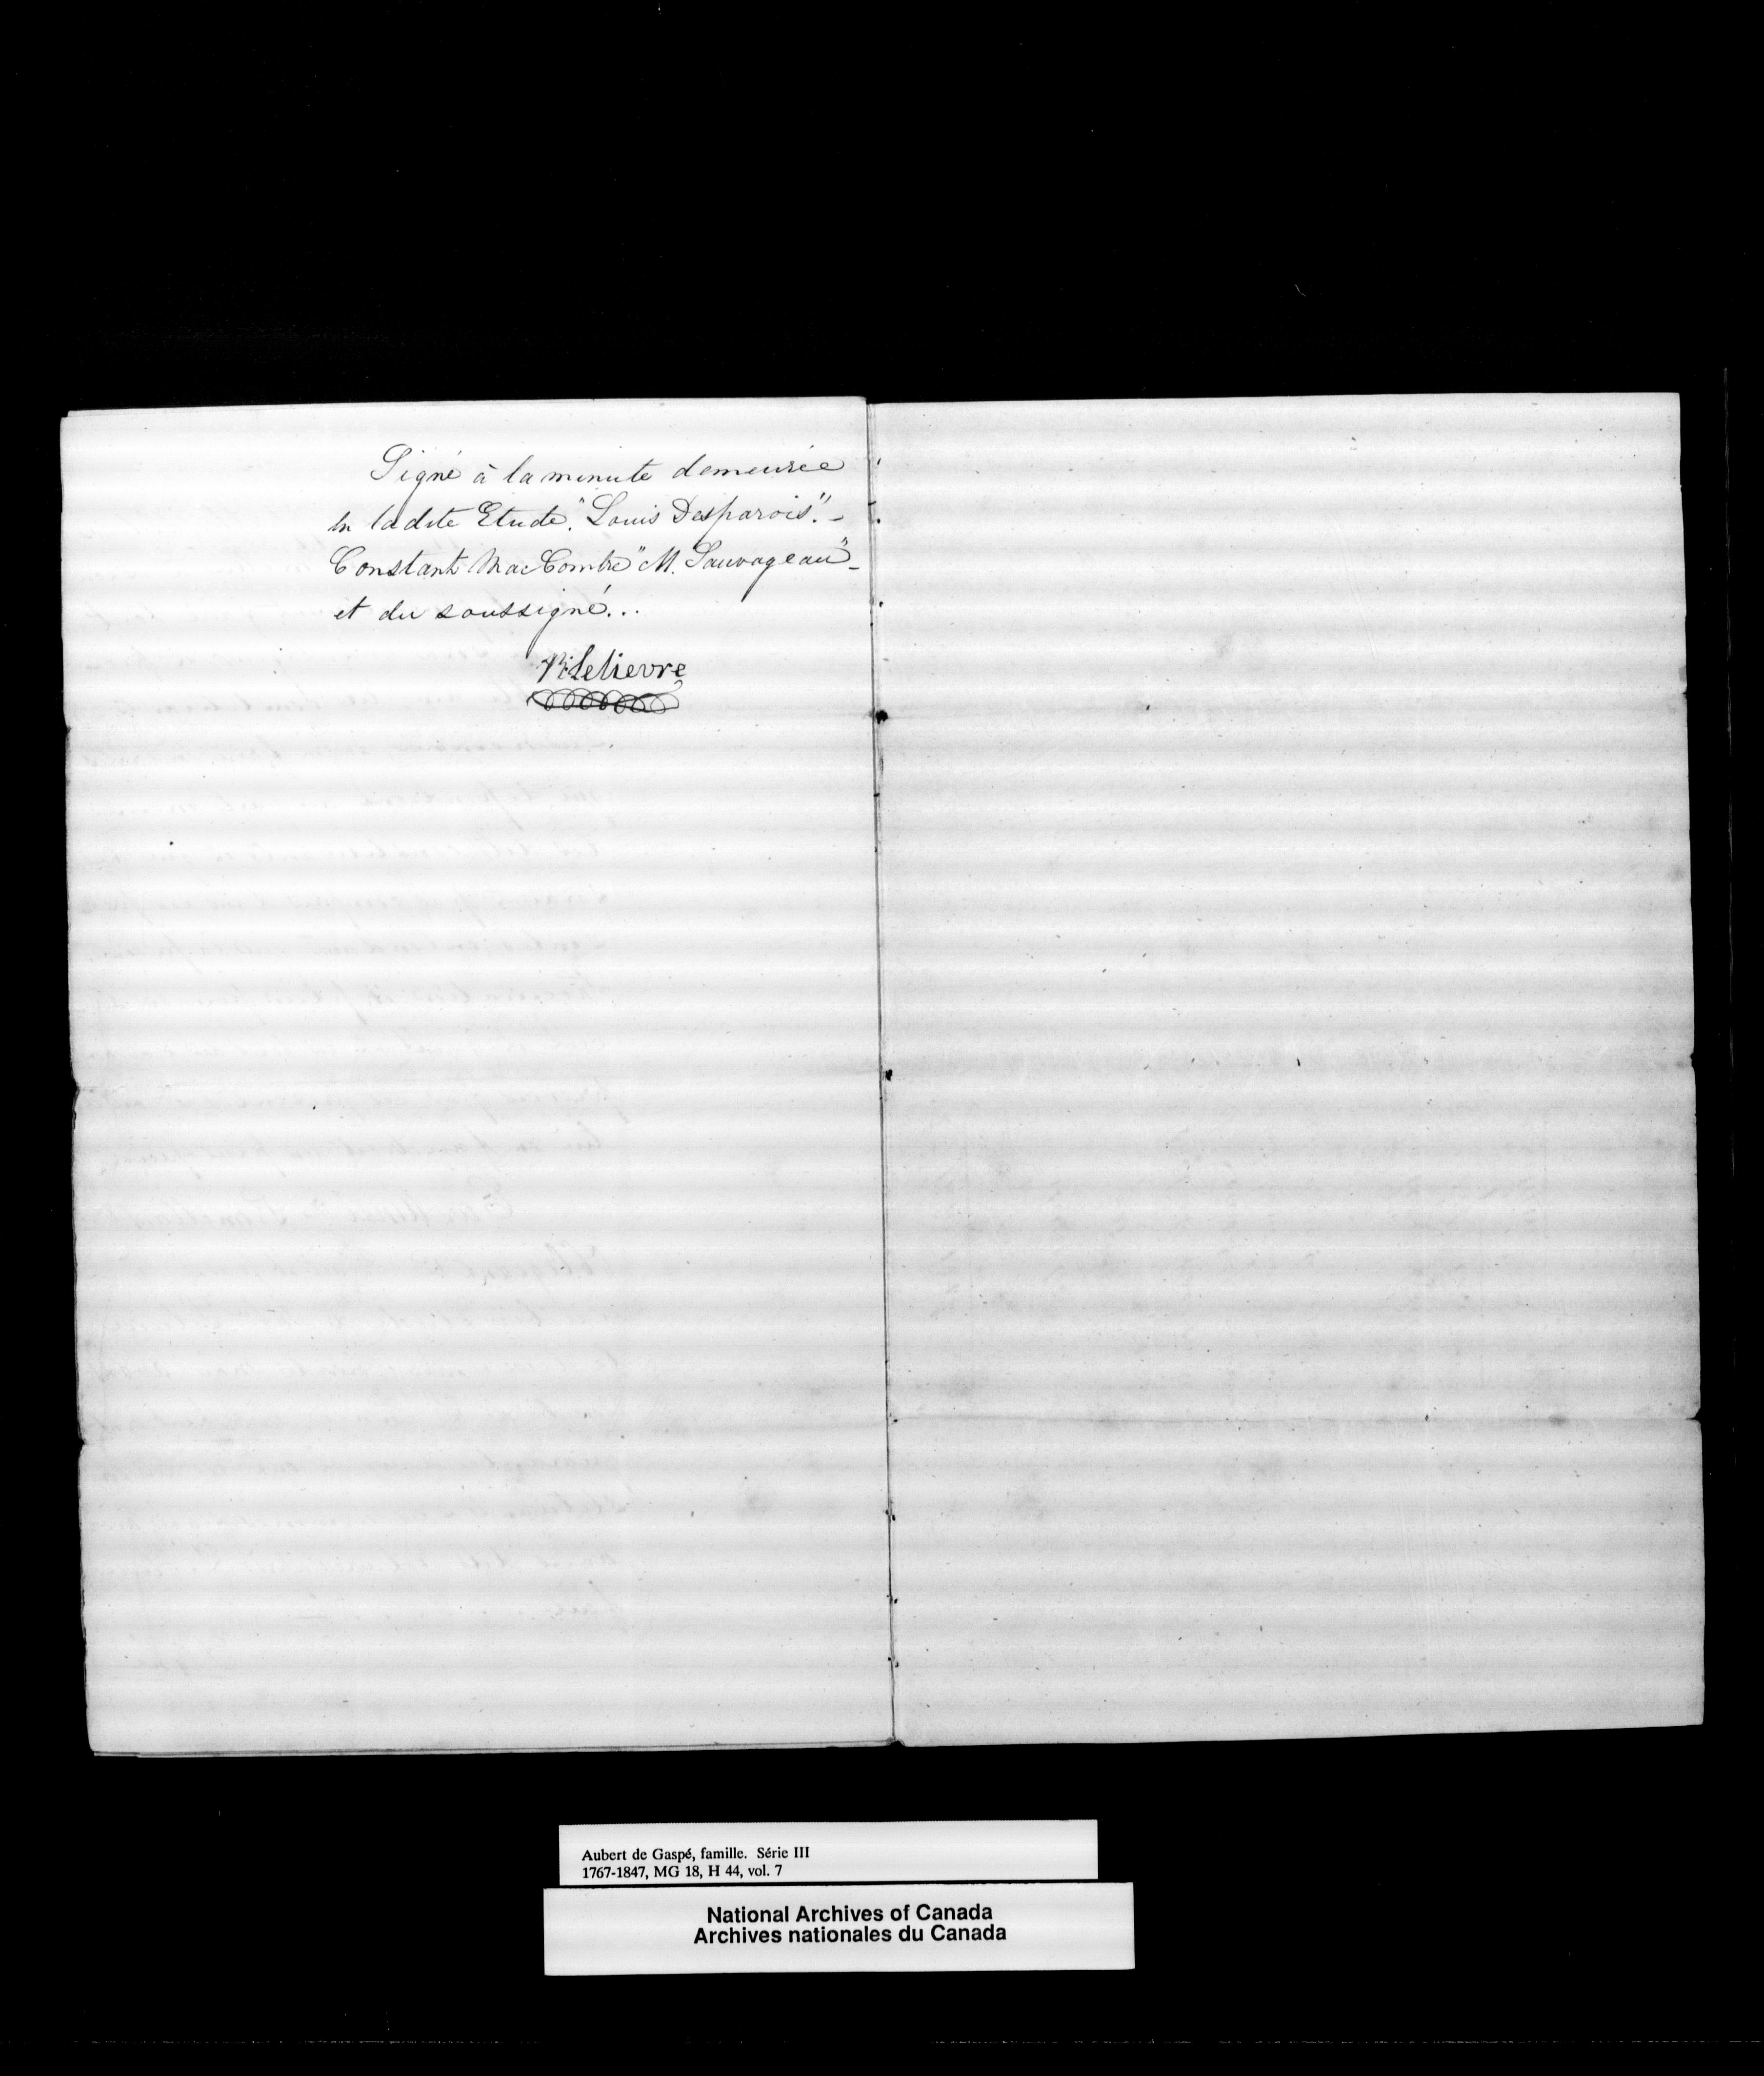 Signé à la minute demeurée
en ladite Etude. "Louis Desparois". -
Constant Mac Combe" "M. Sauvageau" -
et du soussigné...
Lelievre
Aubert de Gaspé, famille. Série III
1767-1847, MG 18, H 44, vol. 7
National Archives of Canada
Archives nationales du Canada